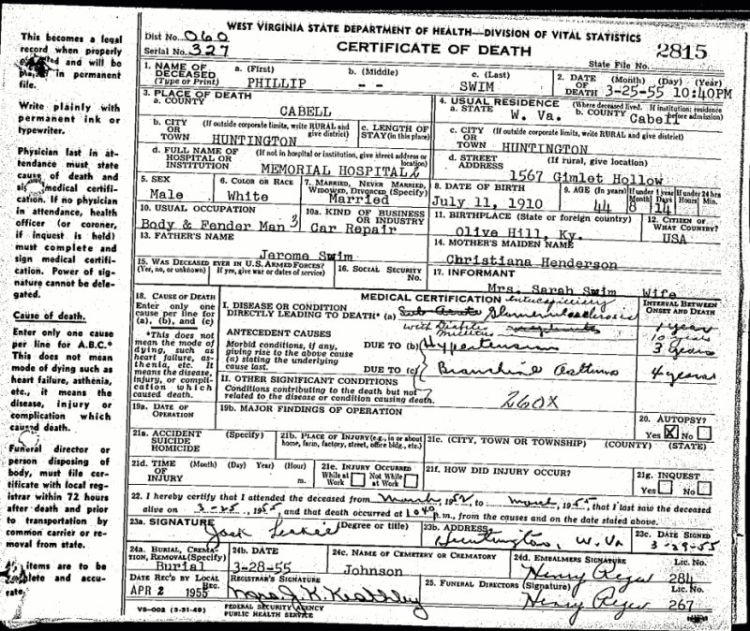 This becomes a legal
record when properly
and will be
in permanent
file.
Write plainly with
permanent ink or
typewriter.
Physician last in at-
tendance must state
cause of death and
medical certifi-
cation. If no physician
in attendance, health
officer (or coroner,
if inquest is held)
must complete and
sign medical certifi-
cation. Power of sig-
nature cannot be dele-
gated.
Cause of death.
Enter only one cause
per line for A.B.C.*
This does not mean
mode of dying such as
heart failure, asthenia,
etc., it means the
disease, injury or
complication which
caused death.
Funeral director or
person disposing of
body, must file cer-
tificate with local reg-
istrar within 72 hours
after death and prior
to transportation by
common carrier or re-
moval from state.
items are to be
and accu-
rate.
WEST VIRGINIA STATE DEPARTMENT OF HEALTH—DIVISION OF VITAL STATISTICS
Dist No. 060
Serial No. 327
CERTIFICATE OF DEATH
State File No. 2815
1. NAME OF DECEASED (Type or Print) a. (First) PHILLIP b. (Middle) - - c. (Last) SWIM
2. DATE OF DEATH (Month) (Day) (Year) 3-25-55 10:40PM
3. PLACE OF DEATH
a. COUNTY CABELL
4. USUAL RESIDENCE (Where deceased lived. If institution: residence before admission)
a. STATE W. Va. b. COUNTY Cabell
b. CITY OR TOWN (If outside corporate limits, write RURAL and give district) HUNTINGTON
c. LENGTH OF STAY (in this place)
c. CITY OR TOWN (If outside corporate limits, write RURAL and give district) HUNTINGTON
d. FULL NAME OF HOSPITAL OR INSTITUTION (If not in hospital or institution, give street address or location) MEMORIAL HOSPITAL
d. STREET ADDRESS (If rural, give location) 1567 Gimlet Hollow
5. SEX Male
6. COLOR OR RACE White
7. MARRIED, NEVER MARRIED, WIDOWED, DIVORCED (Specify) Married
8. DATE OF BIRTH July 11, 1910
9. AGE (In years) 44 If under 1 year Months 8 Days 14 If under 24 hrs Hours Min.
10. USUAL OCCUPATION Body & Fender Man 3
10a. KIND OF BUSINESS OR INDUSTRY Car Repair
11. BIRTHPLACE (State or foreign country) Olive Hill, Ky.
12. CITIZEN OF WHAT COUNTRY? USA
13. FATHER'S NAME Jerome Swim
14. MOTHER'S MAIDEN NAME Christiana Henderson
15. WAS DECEASED EVER IN U.S. ARMED FORCES? (Yes, no, or unknown) (If yes, give war or dates of service)
16. SOCIAL SECURITY No.
17. INFORMANT Mrs. Sarah Swim Wife
MEDICAL CERTIFICATION
INTERVAL BETWEEN ONSET AND DEATH
18. CAUSE OF DEATH
Enter only one
cause per line for
(a), (b), and (c)
*This does not
mean the mode of
dying, such as
heart failure, as-
thenia, etc. It
means the disease,
injury, or compli-
cation which
caused death.
I. DISEASE OR CONDITION
DIRECTLY LEADING TO DEATH* (a) Intercapillary Glomerulosclerosis 1 year
with Diabetes Mellitus 10 years
ANTECEDENT CAUSES
Morbid conditions, if any,
giving rise to the above cause
(a) stating the underlying
cause last.
DUE TO (b) Hypertension 3 years
DUE TO (c) Bronchial Asthma 4 years
II. OTHER SIGNIFICANT CONDITIONS
Conditions contributing to the death but not
related to the disease or condition causing death.
260X
19a. DATE OF OPERATION
19b. MAJOR FINDINGS OF OPERATION
20. AUTOPSY? Yes X No
21a. ACCIDENT SUICIDE HOMICIDE (Specify)
21b. PLACE OF INJURY (e.g., in or about home, farm, factory, street, office bldg., etc.)
21c. (CITY, TOWN OR TOWNSHIP) (COUNTY) (STATE)
21d. TIME OF INJURY (Month) (Day) (Year) (Hour) m.
21e. INJURY OCCURRED While at Work Not While at Work
21f. HOW DID INJURY OCCUR?
21g. INQUEST Yes No
22. I hereby certify that I attended the deceased from March, 1952, to March, 1955, that I last saw the deceased
alive on 3-25, 1955 and that death occurred at 1040 p.m., from the causes and on the date stated above.
23a. SIGNATURE Jack (Degree or title)
23b. ADDRESS Huntington, W. Va
23c. DATE SIGNED 3-29-55
24a. BURIAL, CREMATION, REMOVAL (Specify) Burial
24b. DATE 3-28-55
24c. NAME OF CEMETERY OR CREMATORY Johnson
24d. EMBALMERS SIGNATURE Henry Lic. No. 284
DATE REC'D BY LOCAL REG. APR 2 1955
REGISTRAR'S SIGNATURE Mrs. J. K. Keathley
25. FUNERAL DIRECTORS (Signature) Henry Lic. No. 267
VS-002 (3-31-49)
FEDERAL SECURITY AGENCY
PUBLIC HEALTH SERVICE